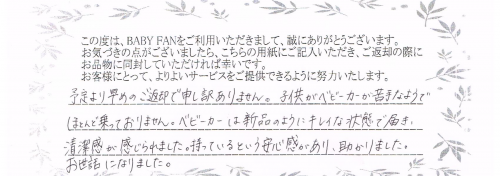 この度は、BABY FANをご利用いただきまして、誠にありがとうございます。
お気づきの点がございましたら、こちらの用紙にご記入いただき、ご返却の際に
お品物に同封していただければ幸いです。
お客様にとって、よりよいサービスをご提供できるように努力いたします。
予定より早めのご返却で申し訳ありません。子供がベビーカーが苦手なようで
ほとんど乗っておりません。ベビーカーは新品のようにキレイな状態で届き、
清潔感が感じられました。持っているという安心感があり、助かりました。
お世話になりました。